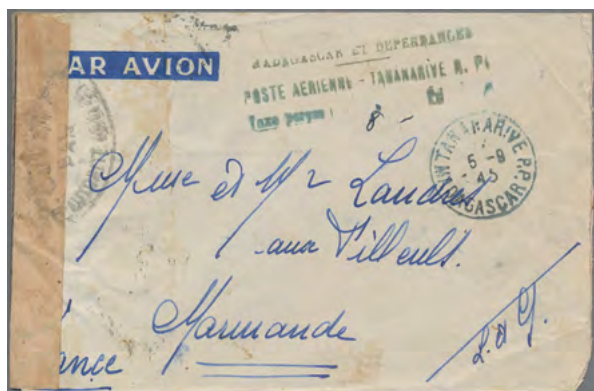 AR AVION
MADAGASCAR ET DEPENDANCES
POSTE AERIENNE - TANANARIVE R. P.
Taxe perçue : 8 -
TANANARIVE R.P.
5 - 9
45
MADAGASCAR
PAR
Mme et Mr Landret
aux Tilleuls.
Marmande
L. et G.
ance